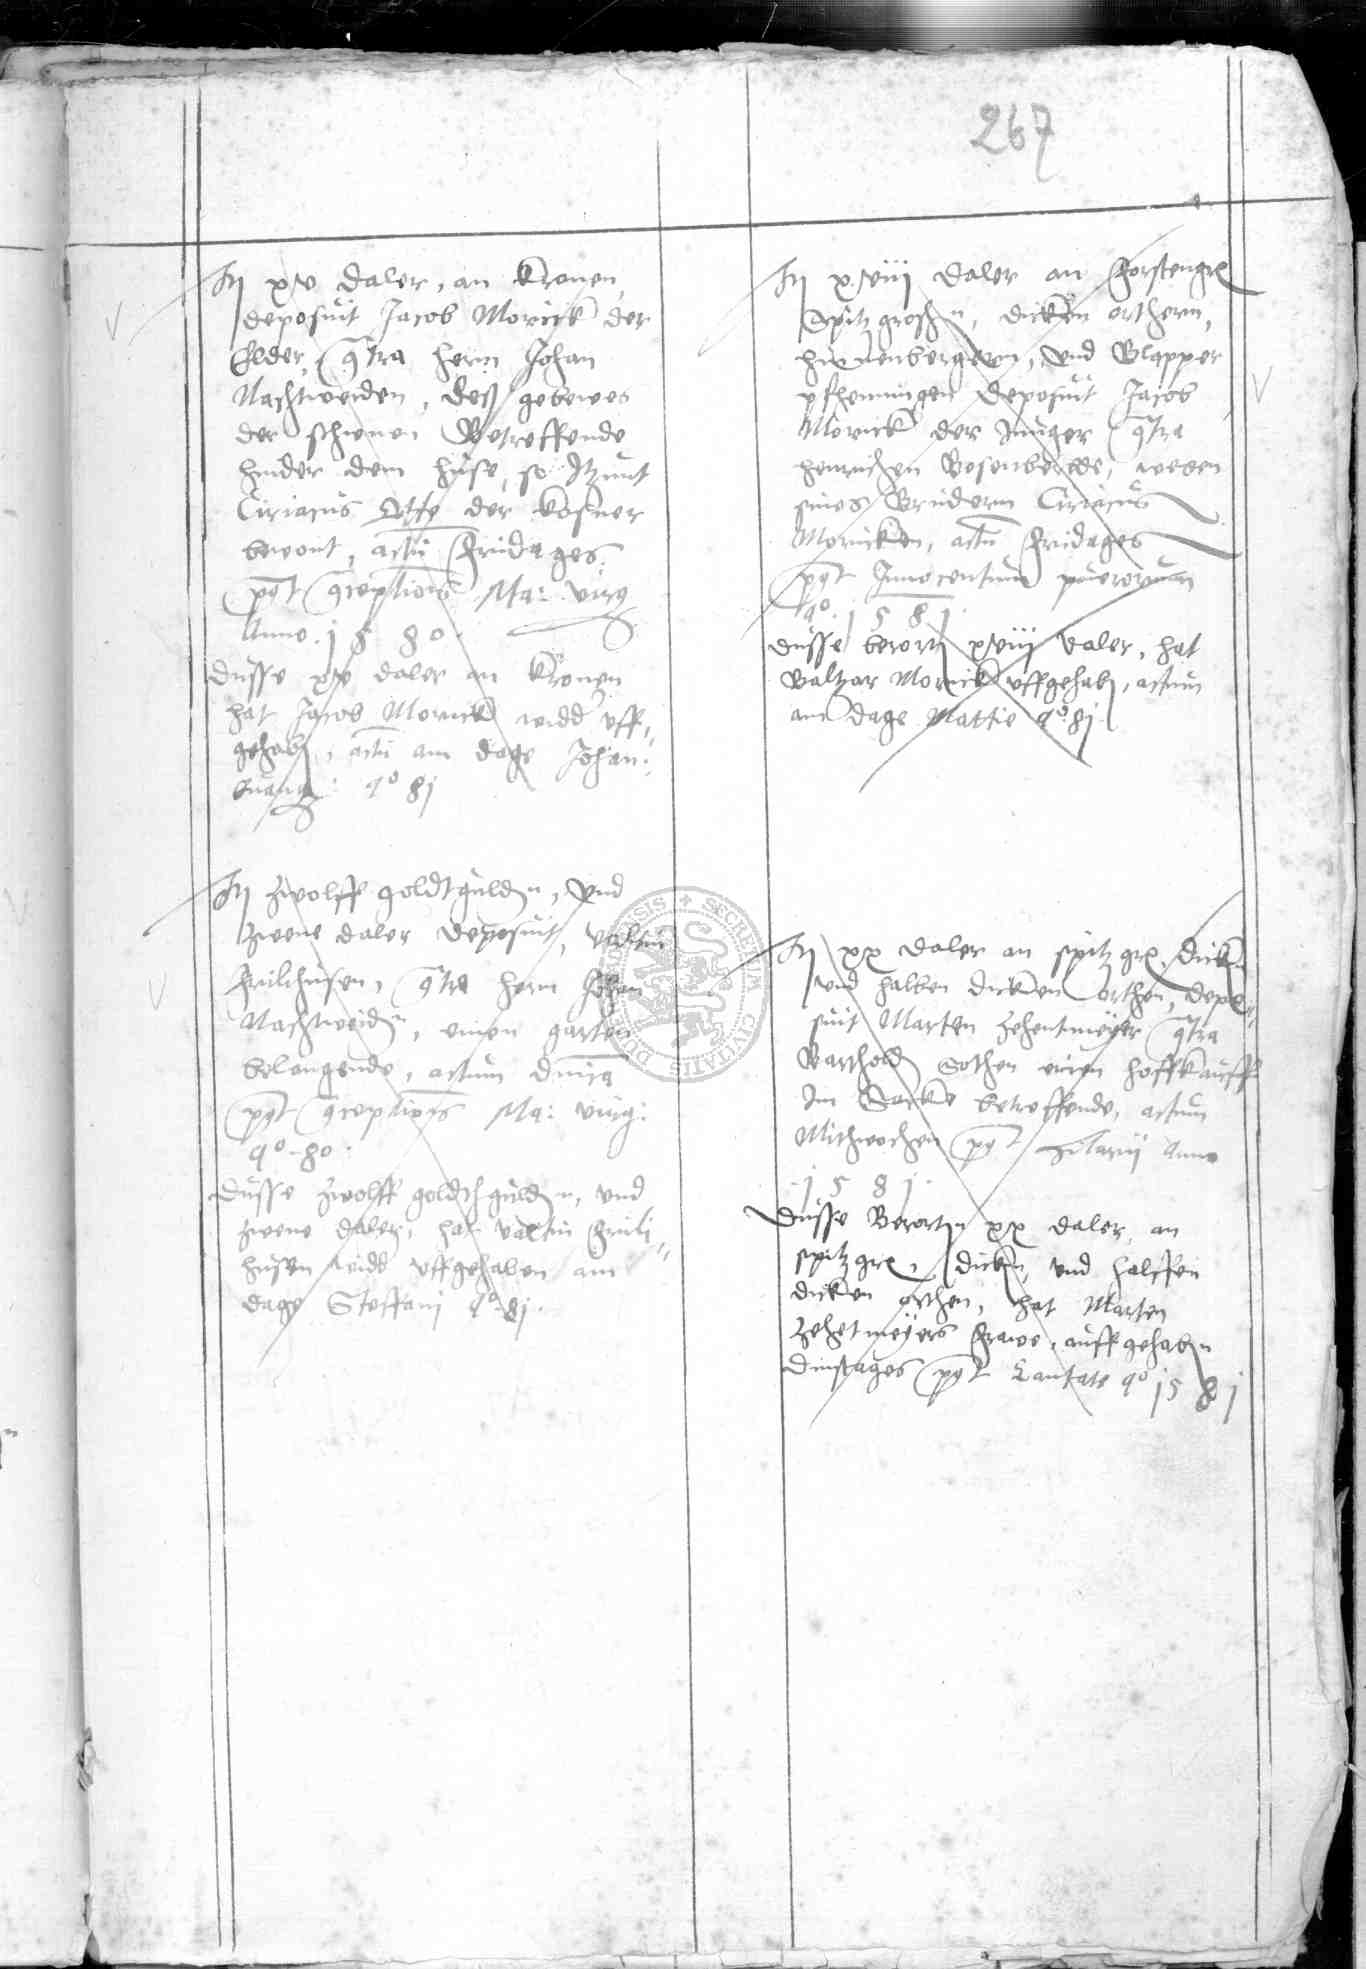 267
Itm xv daler, an kronen,
deposuit Jacob Morick der
Elder, contra hern Johan
Nachtweiden, deß gebewes
der schewnen Betreffende
hinder dem huse, so Itzunt
Ciriacus der
bewont, actū Fridages
post conceptionis Ma: virg
Anno. 1580.
Dusse xv daler an kronen
hat Jacob Morick widd vff„
gehabn, actū am dage Johan:
Evang: ao 81
Itm zwolff goldtguldn, vnd
zwene daler deposuit, valtin
Frilihusen, contra hern Johan
Nachtweidn, einen garten
belangende, actum dnica
post conceptionis Ma: virg:
ao. 80.
Dusse zwolff goldtguldn, vnd
zwene daler, hat valtin Frili„
husen widd vffgehaben am
dage Steffani ao. 81.
Itm xviii daler an Forstengrn
Spitzgroschn, dicken orthern,
vnd Blapper
pfhenningen deposuit Jacob
Morick der Junger contra
henrichen Bosenberge, wegen
sines Brudern Ciriacus
Moricken, actū Fridages
post Innocentium puerorum
ao. 1581.
Dusse berortn xviii daler, hat
Baltzar Morick vffgehabn, actum
am dage Mattie ao. 81.
Itm xx daler an spitzgrn, dickn
vnd halben dicken orthen, depo„
suit Marten Zehentmeyer contra
Barthold Sothen einen hoffkauff
Im Sacke betreffende, actum
Mithwochen post Hilarij Anno
1581.
Dusse Berortn xx daler, an
spitzgrn, dickn, vnd halffen
dicken orthen, hat Marten
Zehetmeyers Frawe, auffgehabn
Dinstages post Cantate ao 1581
SECRETUM CIVITATIS